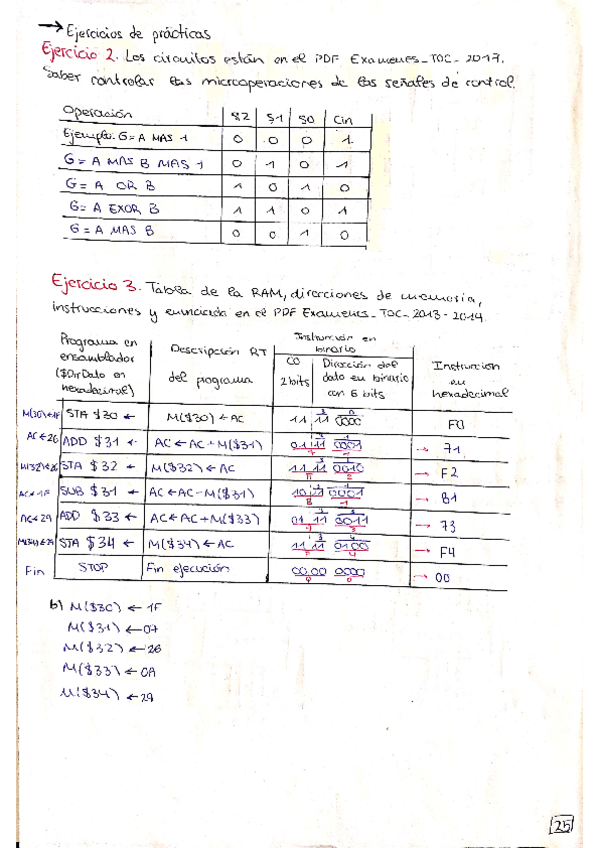 → Ejercicios de prácticas
Ejercicio 2. Los circuitos están en el PDF Examenes_TOC_2017.
Saber controlar las microoperaciones de las señales de control.
Operación S2 S1 S0 Cin
Ejemplo: G = A MAS 1 0 0 0 1
G = A MAS B MAS 1 0 1 0 1
G = A OR B 1 0 1 0
G = A EXOR B 1 1 0 1
G = A MAS B 0 0 1 0
Ejercicio 3. Tabla de la RAM, direcciones de memoria,
instrucciones y enunciado en el PDF Examenes_TOC_2013-2014.
Programa en ensamblador ($DirDato en hexadecimal)
Descripción RT del programa
Instrucción en binario
CO 2 bits
Dirección del dato en binario con 6 bits
Instrucción en hexadecimal
M(30)←1F STA $30 ← M($30) ← AC 11 11 0000 F0
AC←26 ADD $31 ← AC ← AC + M($31) 01 11 0001 → 71
M(32)←26 STA $32 ← M($32) ← AC 11 11 0010 → F2
AC←1F SUB $31 ← AC ← AC - M($31) 10 11 0001 → B1
AC←29 ADD $33 ← AC ← AC + M($33) 01 11 0011 → 73
M(34)←29 STA $34 ← M($34) ← AC 11 11 0100 → F4
Fin STOP Fin ejecución 00 00 0000 → 00
b) M($30) ← 1F
M($31) ← 07
M($32) ← 26
M($33) ← 0A
M($34) ← 29
25